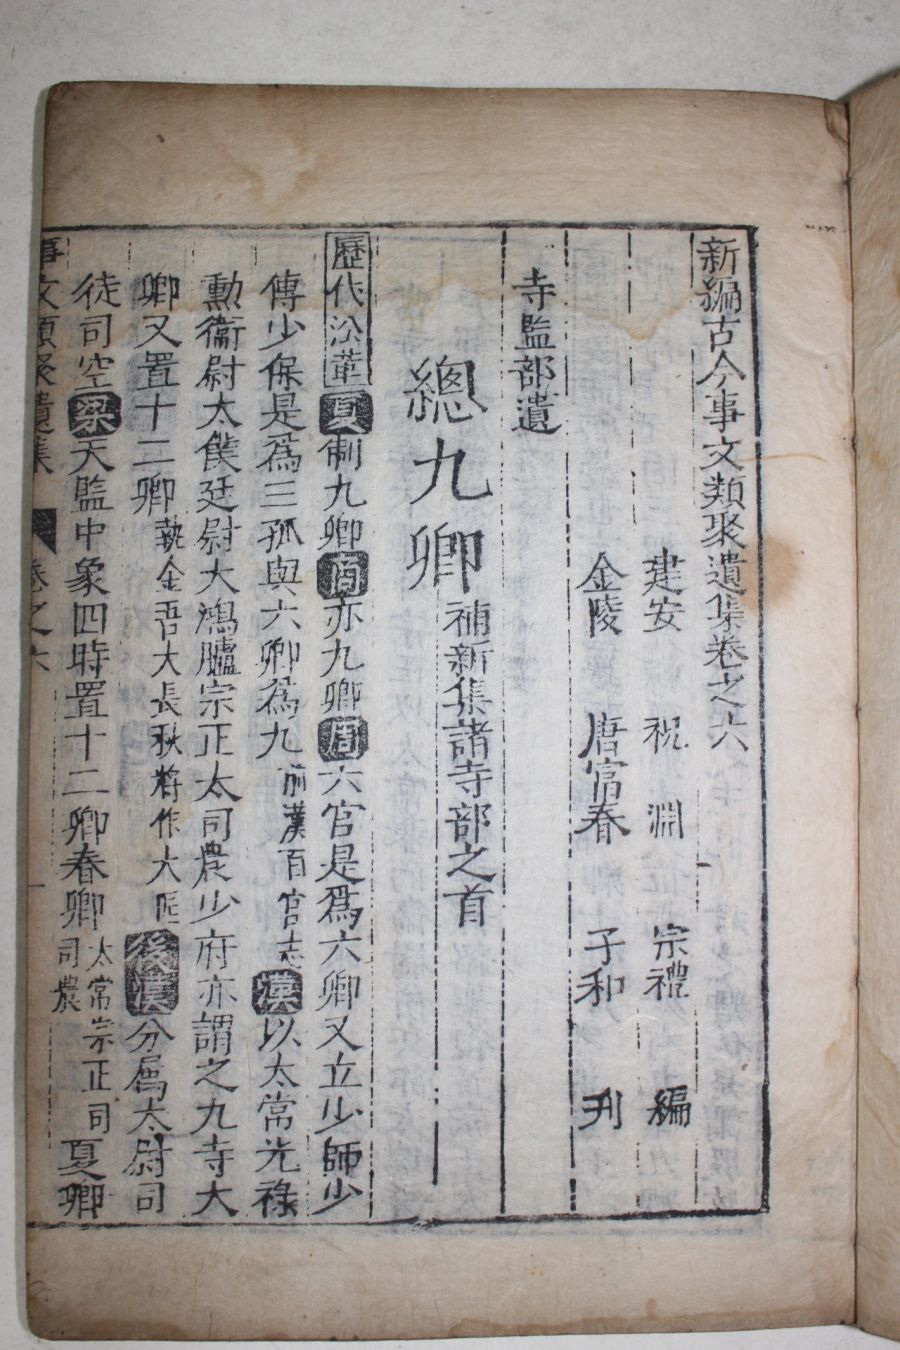 新編古今事文類聚遺集卷之六
建安 祝 淵 宗禮 編
金陵 唐富春 子和 刋
寺監部遺
總九卿補新集諸寺部之首
歷代沿革夏制九卿商亦九卿周六官是爲六卿又立少師少
傅少保是爲三孤與六卿爲九前漢百官志漢以太常光祿
勳衞尉太僕廷尉大鴻臚宗正太司農少府亦謂之九寺大
卿又置十二卿執金吾大長秋將作大匠後漢分屬太尉司
徒司空梁天監中象四時置十二卿春卿太常宗正司司農夏卿
事文類聚遺集 卷之六 一